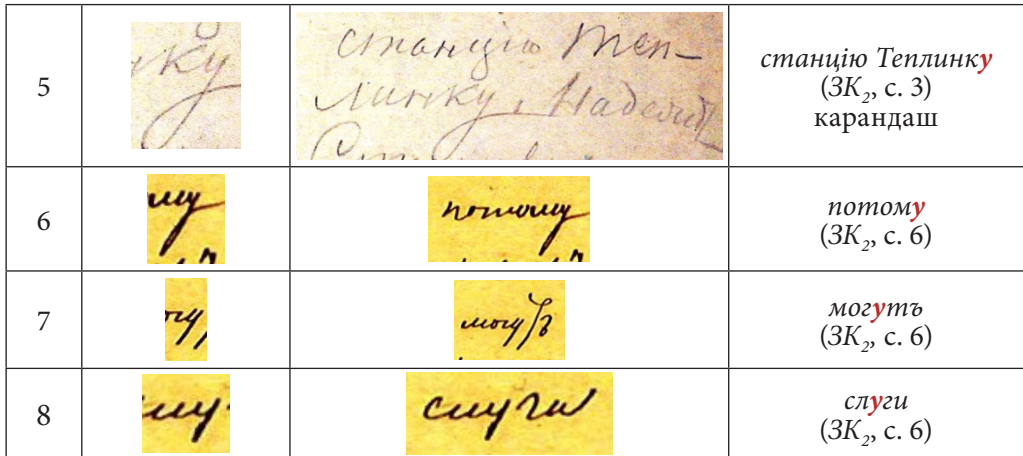 5
ку
станцію Теп-
линку, Надел
станцію Теплинку
(ЗК₂, с. 3)
карандаш
6
му
потому
потому
(ЗК₂, с. 6)
7
огу
могутъ
могутъ
(ЗК₂, с. 6)
8
лу
слуги
слуги
(ЗК₂, с. 6)